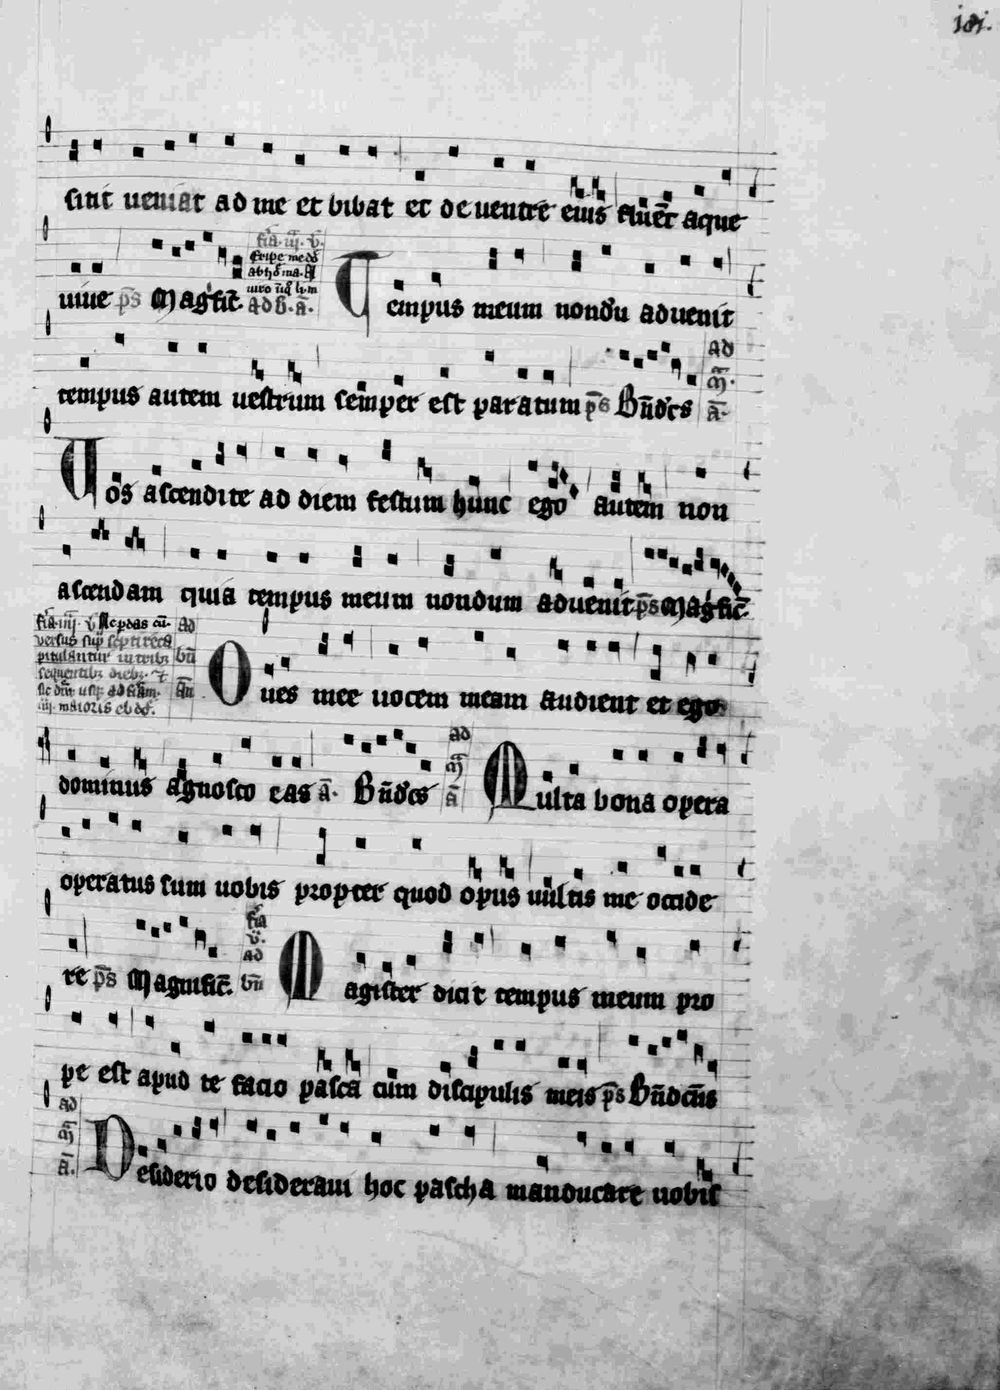 sitit ueniat ad me et bibat et de uentre eius fluent aque
uiue p̄s Magn̄ific̄. ad b̄. ā. Tempus meum nondū aduenit
tempus autem uestrum semper est paratum p̄s Bn̄dc̄s ad m̄. ā.
Uos ascendite ad diem festum hunc ego autem non
ascendam quia tempus meum nondum aduenit p̄s Magn̄ific̄.
uersus
sequentibꝫ diebꝫ
maioris ebd̄.
ad bn̄ ān
Oues mee uocem meam audient et ego
dominus agnosco eas ā. Bn̄dc̄s ad m̄ ā Multa bona opera
operatus sum uobis propter quod opus uultis me occide
re p̄s Magnific̄. fīa v̄. ad bn̄ Magister dicit tempus meum pro
pe est apud te facio pasca cum discipulis meis p̄s Bn̄dcūs
ad m̄ ā. Desiderio desideraui hoc pascha manducare uobis